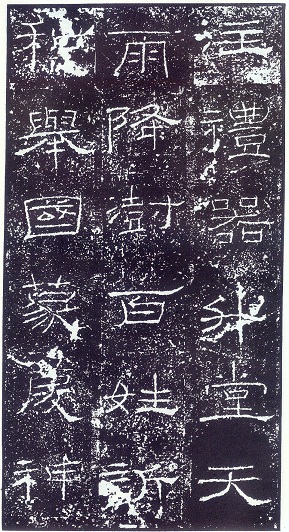 注禮器升堂天
雨降澍百姓訢
和舉國蒙慶神